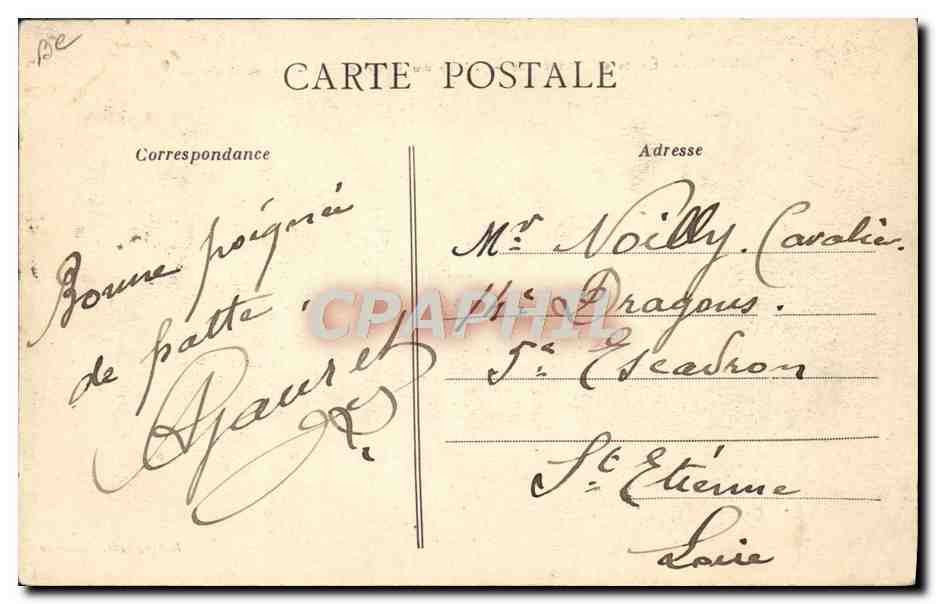 Be
CARTE POSTALE
Correspondance
Bonne poignée
de patte.
Adresse
Mr Noilly. Cavalier.
14e Dragons.
5e Escadron
St Etienne
Loire
CPAPHIL